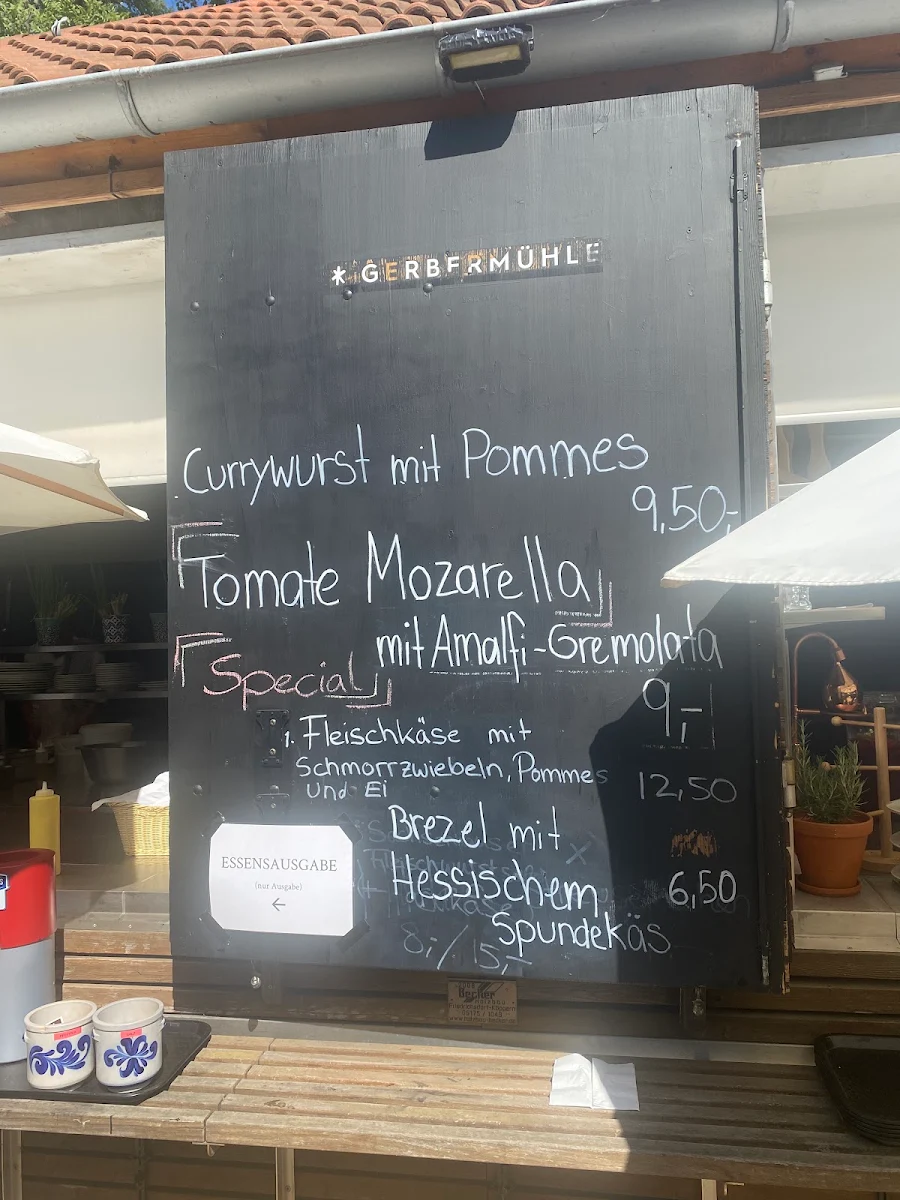 * GERBERMÜHLE
Currywurst mit Pommes
9,50,-
Tomate Mozarella
mit Amalfi-Gremolata
Special
9,-
1. Fleischkäse mit
Schmorrzwiebeln, Pommes
und Ei
12,50
Brezel mit
Hessischem
6,50
Spundekäs
8,-/ 5,-
ESSENSAUSGABE
(nur Ausgabe)
←